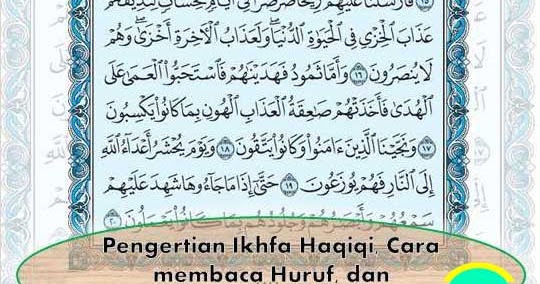 فَأَرْسَلْنَا عَلَيْهِمْ رِيحًا صَرْصَرًا فِي أَيَّامٍ نَّحِسَاتٍ لِّنُذِيقَهُمْ
عَذَابَ الْخِزْيِ فِي الْحَيَوٰةِ الدُّنْيَا ۖ وَلَعَذَابُ الْآخِرَةِ أَخْزَىٰ ۖ وَهُمْ
لَا يُنصَرُونَ ١٦ وَأَمَّا ثَمُودُ فَهَدَيْنَٰهُمْ فَاسْتَحَبُّوا الْعَمَىٰ عَلَى
الْهُدَىٰ فَأَخَذَتْهُمْ صَٰعِقَةُ الْعَذَابِ الْهُونِ بِمَا كَانُوا يَكْسِبُونَ
١٧ وَنَجَّيْنَا الَّذِينَ ءَامَنُوا وَكَانُوا يَتَّقُونَ ١٨ وَيَوْمَ يُحْشَرُ أَعْدَآءُ اللَّهِ
إِلَى النَّارِ فَهُمْ يُوزَعُونَ ١٩ حَتَّىٰٓ إِذَا مَا جَآءُوهَا شَهِدَ عَلَيْهِمْ
سَمْعُهُمْ وَأَبْصَٰرُهُمْ وَجُلُودُهُم بِمَا كَانُوا يَعْمَلُونَ ٢٠
Pengertian Ikhfa Haqiqi, Cara
membaca Huruf, dan